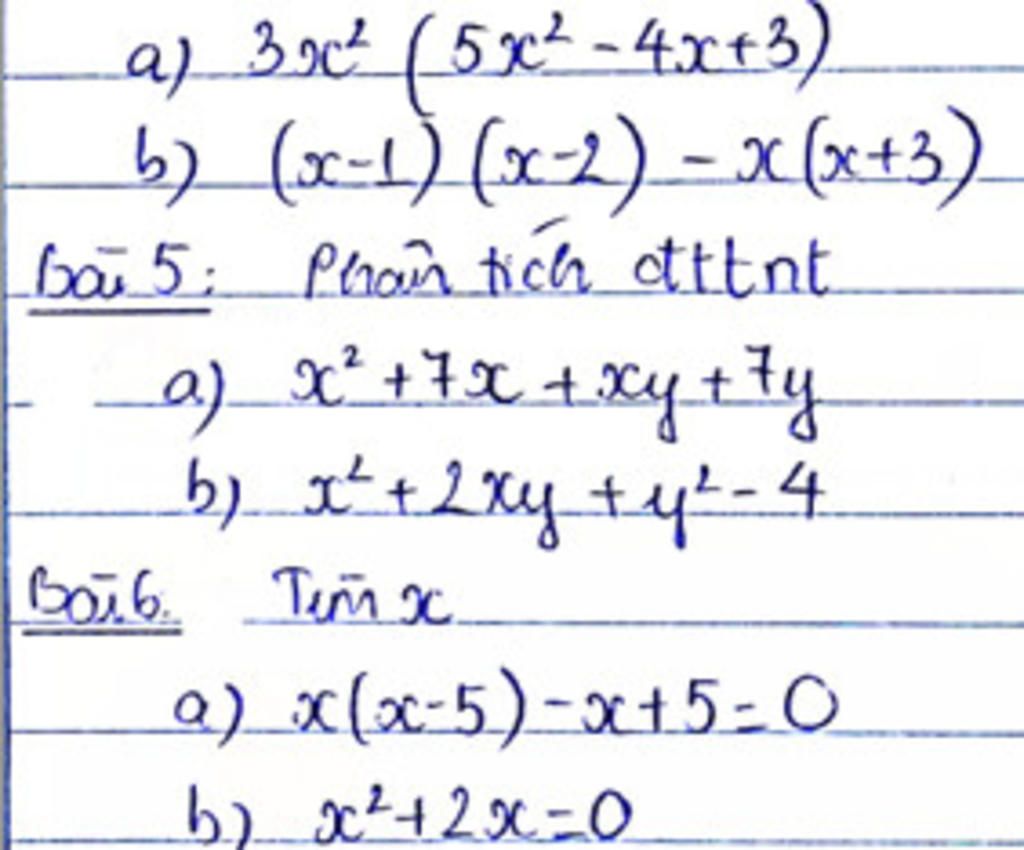 a) 3x² (5x² - 4x + 3)
b) (x-1) (x-2) - x(x+3)
Bài 5: Phân tích đttnt
a) x² + 7x + xy + 7y
b) x² + 2xy + y² - 4
Bài 6. Tìm x
a) x(x-5) - x + 5 = 0
b) x² + 2x = 0